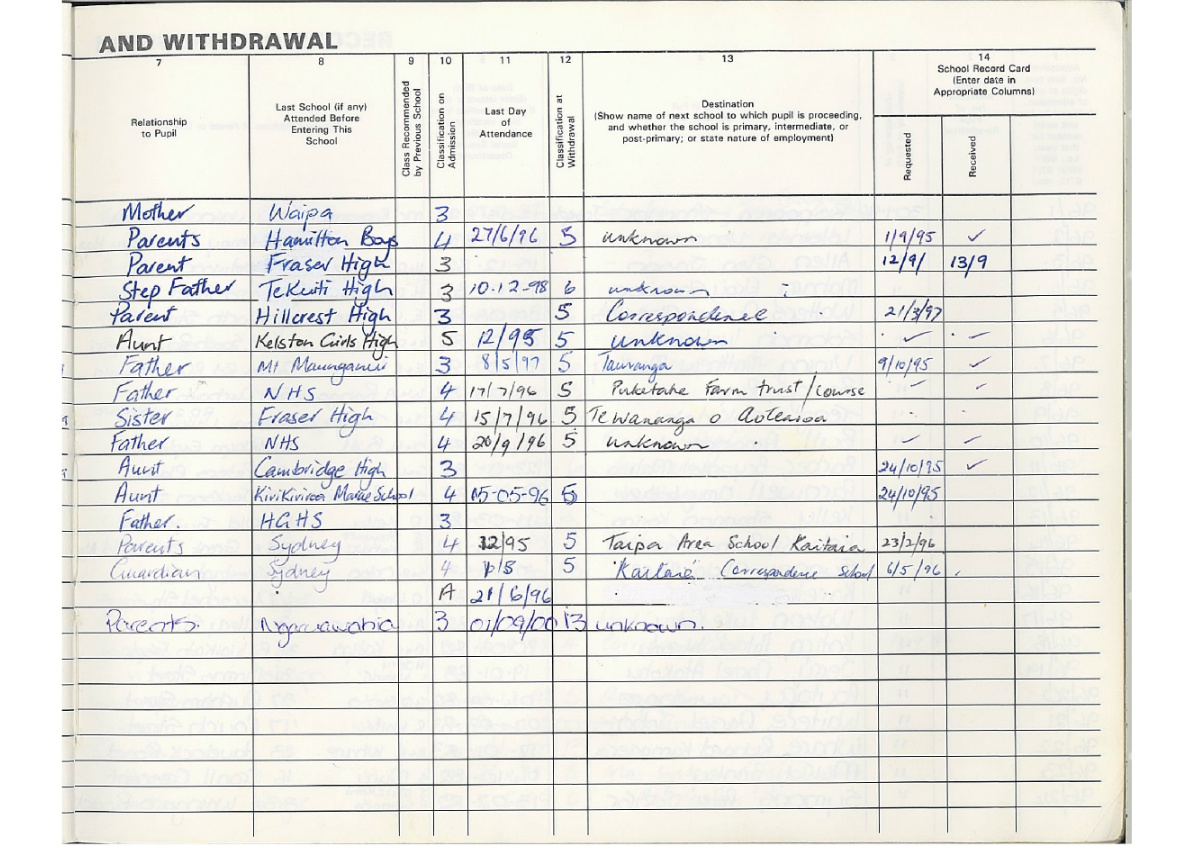 AND WITHDRAWAL
7 8 9 10 11 12 13 14
Relationship to Pupil
Last School (if any) Attended Before Entering This School
Class Recommended by Previous School
Classification on Admission
Last Day of Attendance
Classification at Withdrawal
Destination
(Show name of next school to which pupil is proceeding, and whether the school is primary, intermediate, or post-primary; or state nature of employment)
School Record Card
(Enter date in Appropriate Columns)
Requested
Received
Mother Waipa 3
Parents Hamilton Boys 4 27/6/96 5 unknown 1/9/95 ✓
Parent Fraser High 3 12/9/ 13/9
Step Father TeKuiti High 3 10.12-98 6 unknown
Parent Hillcrest High 3 5 Correspondence 21/3/97
Aunt Kelston Girls High 5 12/95 5 unknown ✓ ✓
Father Mt Maunganui 3 8/5/97 5 Tauranga 9/10/95 ✓
Father NHS 4 17/7/96 5 Puketaha Farm trust/course ✓ ✓
Sister Fraser High 4 15/7/96 5 Te Wananga o Aotearoa
Father NHS 4 20/9/96 5 unknown ✓ ✓
Aunt Cambridge High 3 24/10/95 ✓
Aunt KiriKiriroa Marae School 4 15-05-96 5 24/10/95
Father. HGHS 3
Parents Sydney 4 12/95 5 Taipa Area School Kaitaia 23/2/96
Guardian Sydney 4 5 Correspondence School 6/5/96
A 21/6/96
Parents. Ngaruawahia 3 01/09/00 13 unknown.